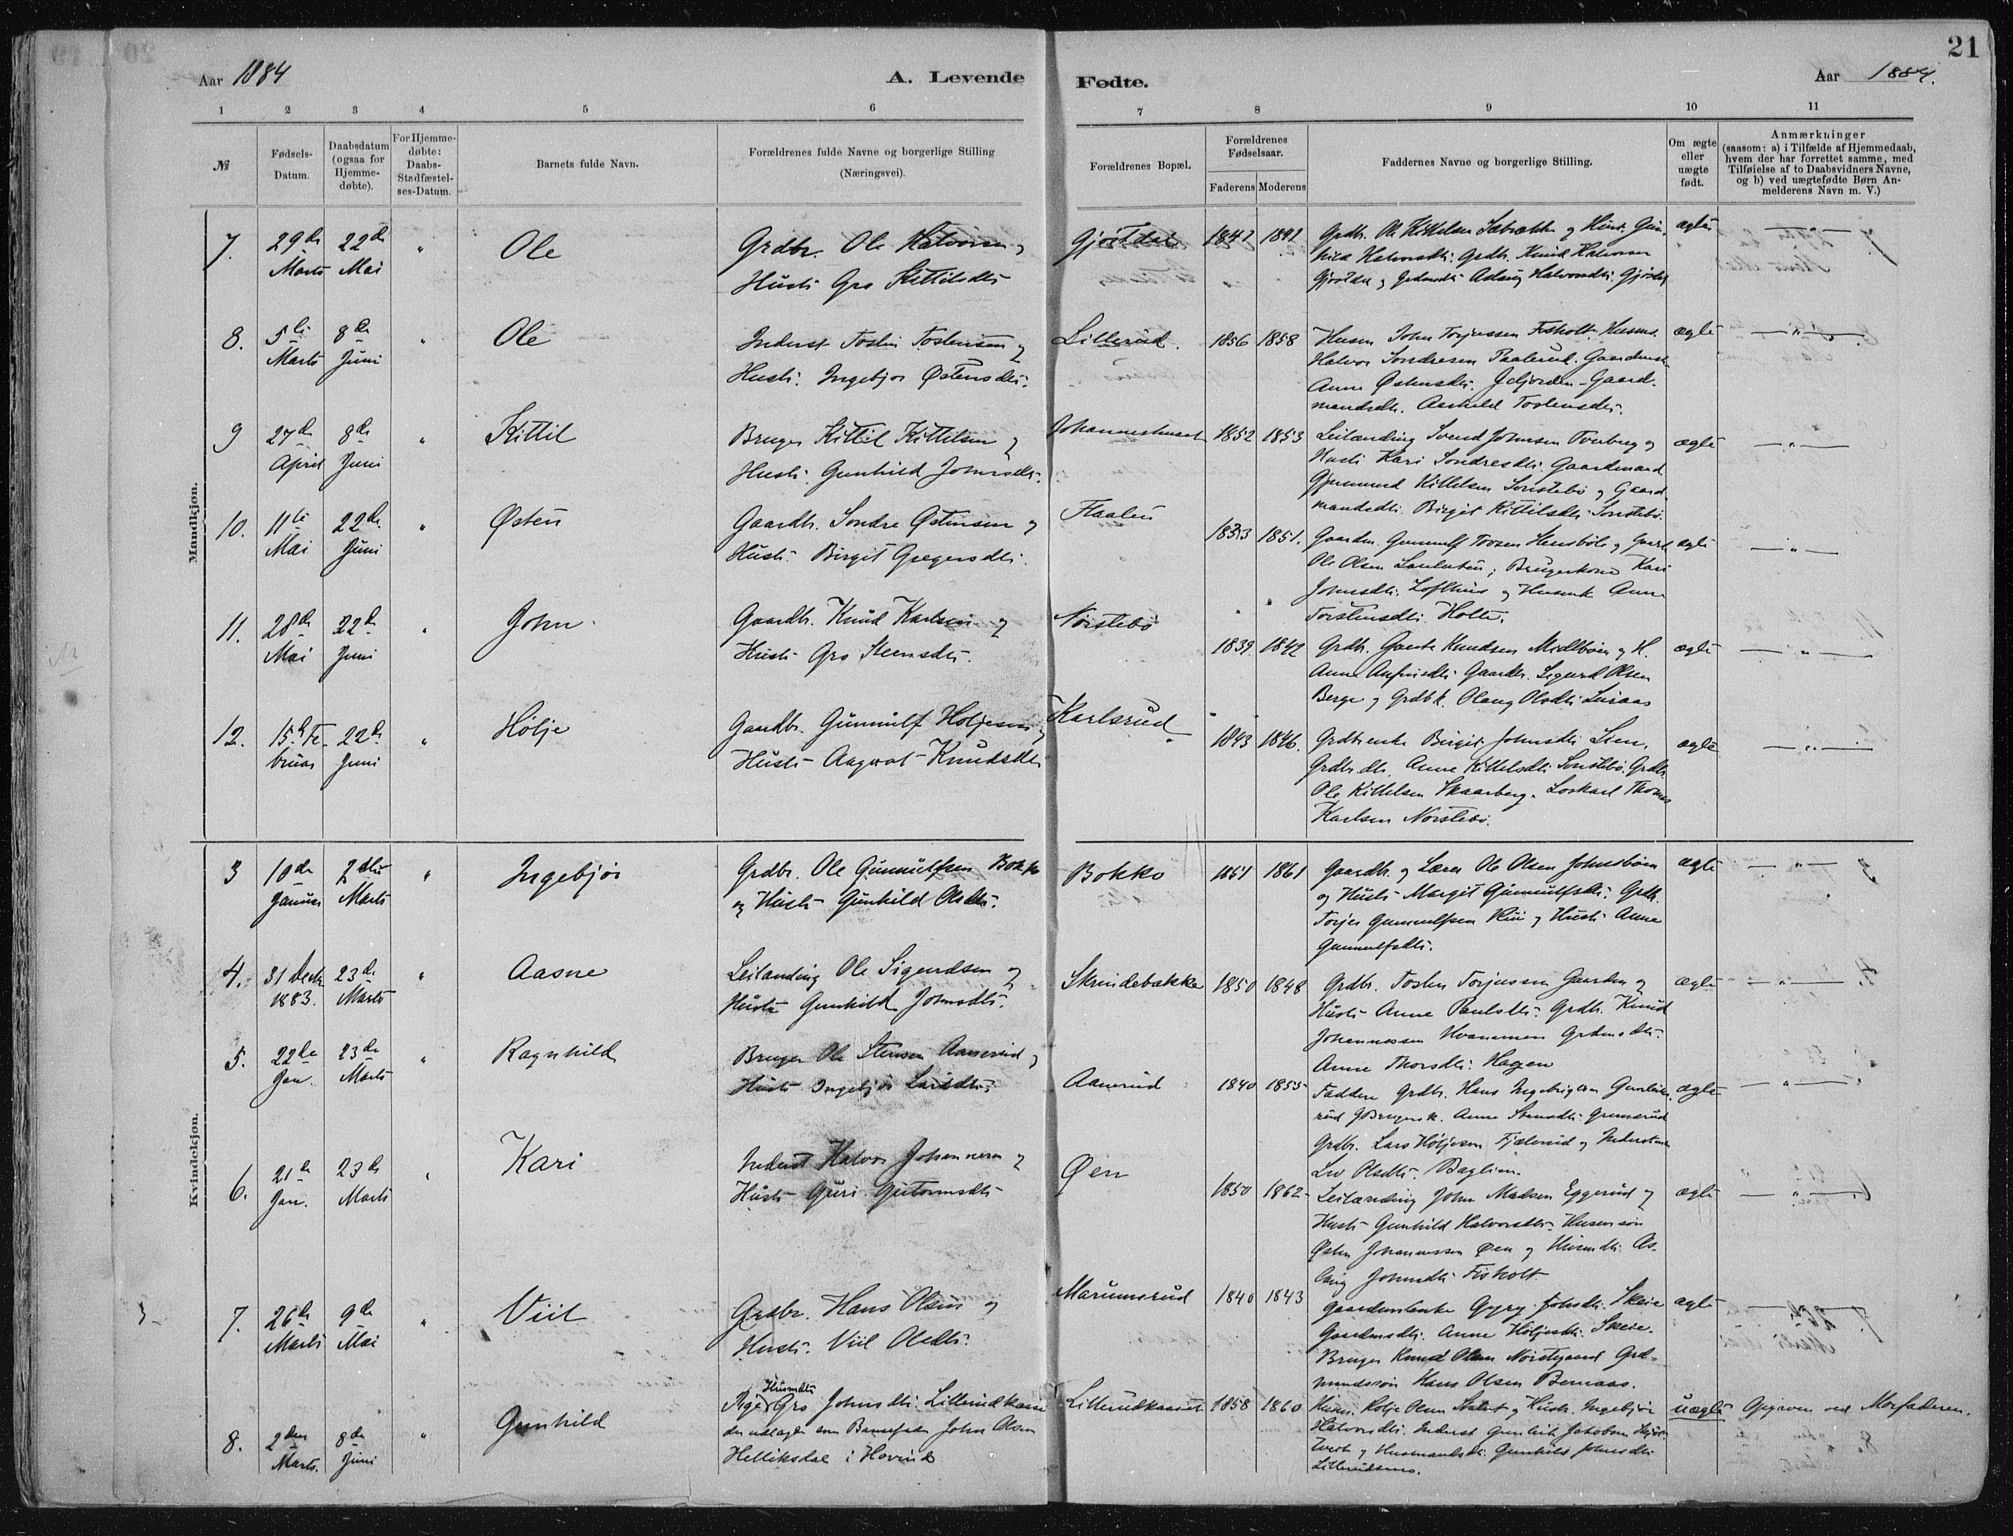 21
Aar 1884
A. Levende
Fødte.
Aar 1884.
1 2 3 4 5 6 7 8 9 10 11
№
Fødsels-
Datum.
Daabsdatum
(ogsaa for
Hjemme-
døbte).
For Hjemme-
døbte:
Daabs-
Stadfæstel-
ses-Datum.
Barnets fulde Navn.
Forældrenes fulde Navne og borgerlige Stilling
(Næringsvei).
Forældrenes Bopæl.
Forældrenes
Fødselsaar.
Faderens Moderens
Faddernes Navne og borgerlige Stilling.
Om ægte
eller
uægte
født.
Anmærkninger
(saasom: a) i Tilfælde af Hjemmedaab,
hvem der har forrettet samme, med
Tilføielse af to Daabsvidners Navne,
og b) ved uægtefødte Børn An-
melderens Navn m. V.)
Mandkjøn.
7. 29de Marts 22de Mai " Ole
Grdbr. Ole Halvorsen og
Hustr. Gro Kittilsdtr.
Gjøstdal 1841
Grdbr. Ole Kittilsen og Hustr. Gun-
hild Halvorsdtr. Grdbr. Knud Halvorsen
ægte
8. 5te Marts 8de Juni " Ole
Inderst Tostein Tostensen og
Hustr. Ingebjør Østensdtr.
Lillerud. 1856 1858
Husm. John Torjussen Fisholt. Husm.
Halvor Sondresen Paalerud. Gaardmd.
Anne Østensdtr. Gaard-
mandsdtr. Aashild Tostensdtr.
ægte —"—
9 27de April 8de Juni " Kittil
Bruger Kittil Kittilsen og
Hustr. Gunhild Johnsdtr.
Johanneshuset 1852 1853
Leilending Svend Johnsen Tveberg og
Hustr. Kari Sondresdtr. Gaardmand
Gjermund Kittilsen Sønstebø og Gaard-
mandsdtr. Birgit Kittilsdtr. Sønstebø.
ægte —"—
10. 11te Mai 22de Juni " Østen
Gaardbr. Sondre Østensen og
Hustr. Birgit Gregersdtr.
Haalen 1853 1851.
Gaardm. Gunnulf Tovsen og Gaard
Ole Olsen Brugerkone Kari
Johnsdtr. Lofthus og Anne
Torstensdtr. Holte.
ægte —"—
11. 28de Mai 22de Juni " John.
Gaardbr. Knud Karlsen og
Hustr. Gro Steensdtr.
Nørstebø 1839 1842
Grdbr. Gaute Knudsen Midtbøen og H.
Anne Gaardbr. Sigurd Olsen
Berge og Grdbk. Olaug Olsdtr.
ægte —"—
12. 15de Fe-
bruar 22de Juni " Høljе
Gaardbr. Gunnulf Høljesen og
Hustr. Aagot Knudsdtr.
Karlsrud 1843 1846.
Grdbrenke Birgit Johnsdtr. Steen,
Grdbr.dtr. Anne Kittilsdtr. Sønstebø. Grdbr.
Ole Kittilsen Skaarberg. Løskarl Thomas
Karlsen Nørstebø.
ægte —"—
Kvindekjøn.
3 10de Januar 2den Marts " Ingebjør
Grdbr. Ole Gunnulfsen Bokko
og Hustr. Gunhild Olsdtr.
Bokko 1861
Gaardbr. og Lærer Ole Olsen
og Hustr. Margit Gunnulfsdtr. Grdbr.
Torjer Gunnulfsen og Hustr. Anne
Gunnulfsdtr.
ægte —"—
4. 31 Decbr. 1883. 23de Marts " Aasne
Leilending Ole Sigurdsen og
Hustr. Gunhild Johnsdtr.
Skrindebakke 1850 1848
Grdbr. Tosten Torjussen Gaarden og
Hustr. Anne Paulsdtr. Grdbr. Knud
Johannessen Hvammen
Anne Thorsdtr. Hagen
ægte —"—
5. 22de Jan. 23de Marts " Ragnhild
Bruger Ole Stensen Aanerud og
Hustr. Ingebjør Larsdtr.
Aanerud 1840 1855
Faddere Grdbr. Hans
Anne Stensdtr. Grunerud
Grdbr. Lars Høljesen Fjælerud og
Liv Olsdtr. Baglien.
ægte —"—
6. 21de Jan. 23de Marts " Kari
Inderst Halvor Johannesen og
Hustr. Guri Gutormsdtr.
Øen 1850 1862
Leilænding John Madsen Eggerud og
Hustr. Gunhild Halvorsdtr. Husm.søn
Østen Johannessen Øen og Husmdtr. As-
laug Johnsdtr. Fisholt
ægte —"—
7. 26de Marts 9de Mai " Viil
Grdbr. Hans Olsen og
Hustr. Viil Olsdtr.
Marumsrud 1840 1843
Gyry Johsdtr. Skeie
Gaardmdtr. Anne Høljesdtr. Skeie.
Bruger Knud Olsen Nørstegaard Grd-
mandssøn Hans Olsen Bernaas.
ægte
8. 2den Marts. 8de Juni " Gunhild
Pige Husmdtr. Gro Johnsdtr. Lillerudkaasa
der udlagde som Barnefader John Olsen
Helliksdal i Hovind
Lillerudkaasat 1858 1860
Husm. Hølje Olsen og Hustr. Ingebjør
Halvorsdtr. Inderst Gunleik Jakobsen
og Husmandsdtr. Gunhild Johnsdtr.
uægte
Opgiven ved Morfaderen.